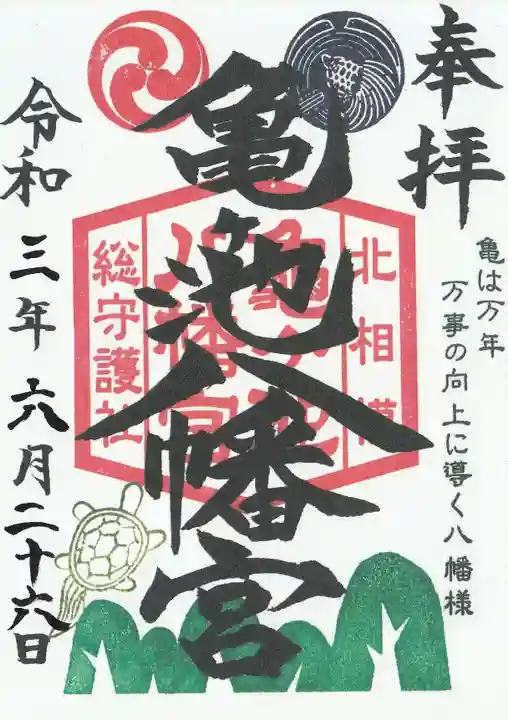 奉拝
亀は万年
万事の向上に導く八幡様
北相模
亀ヶ池
八幡宮
総守護社
亀池八幡宮
令和三年六月二十六日